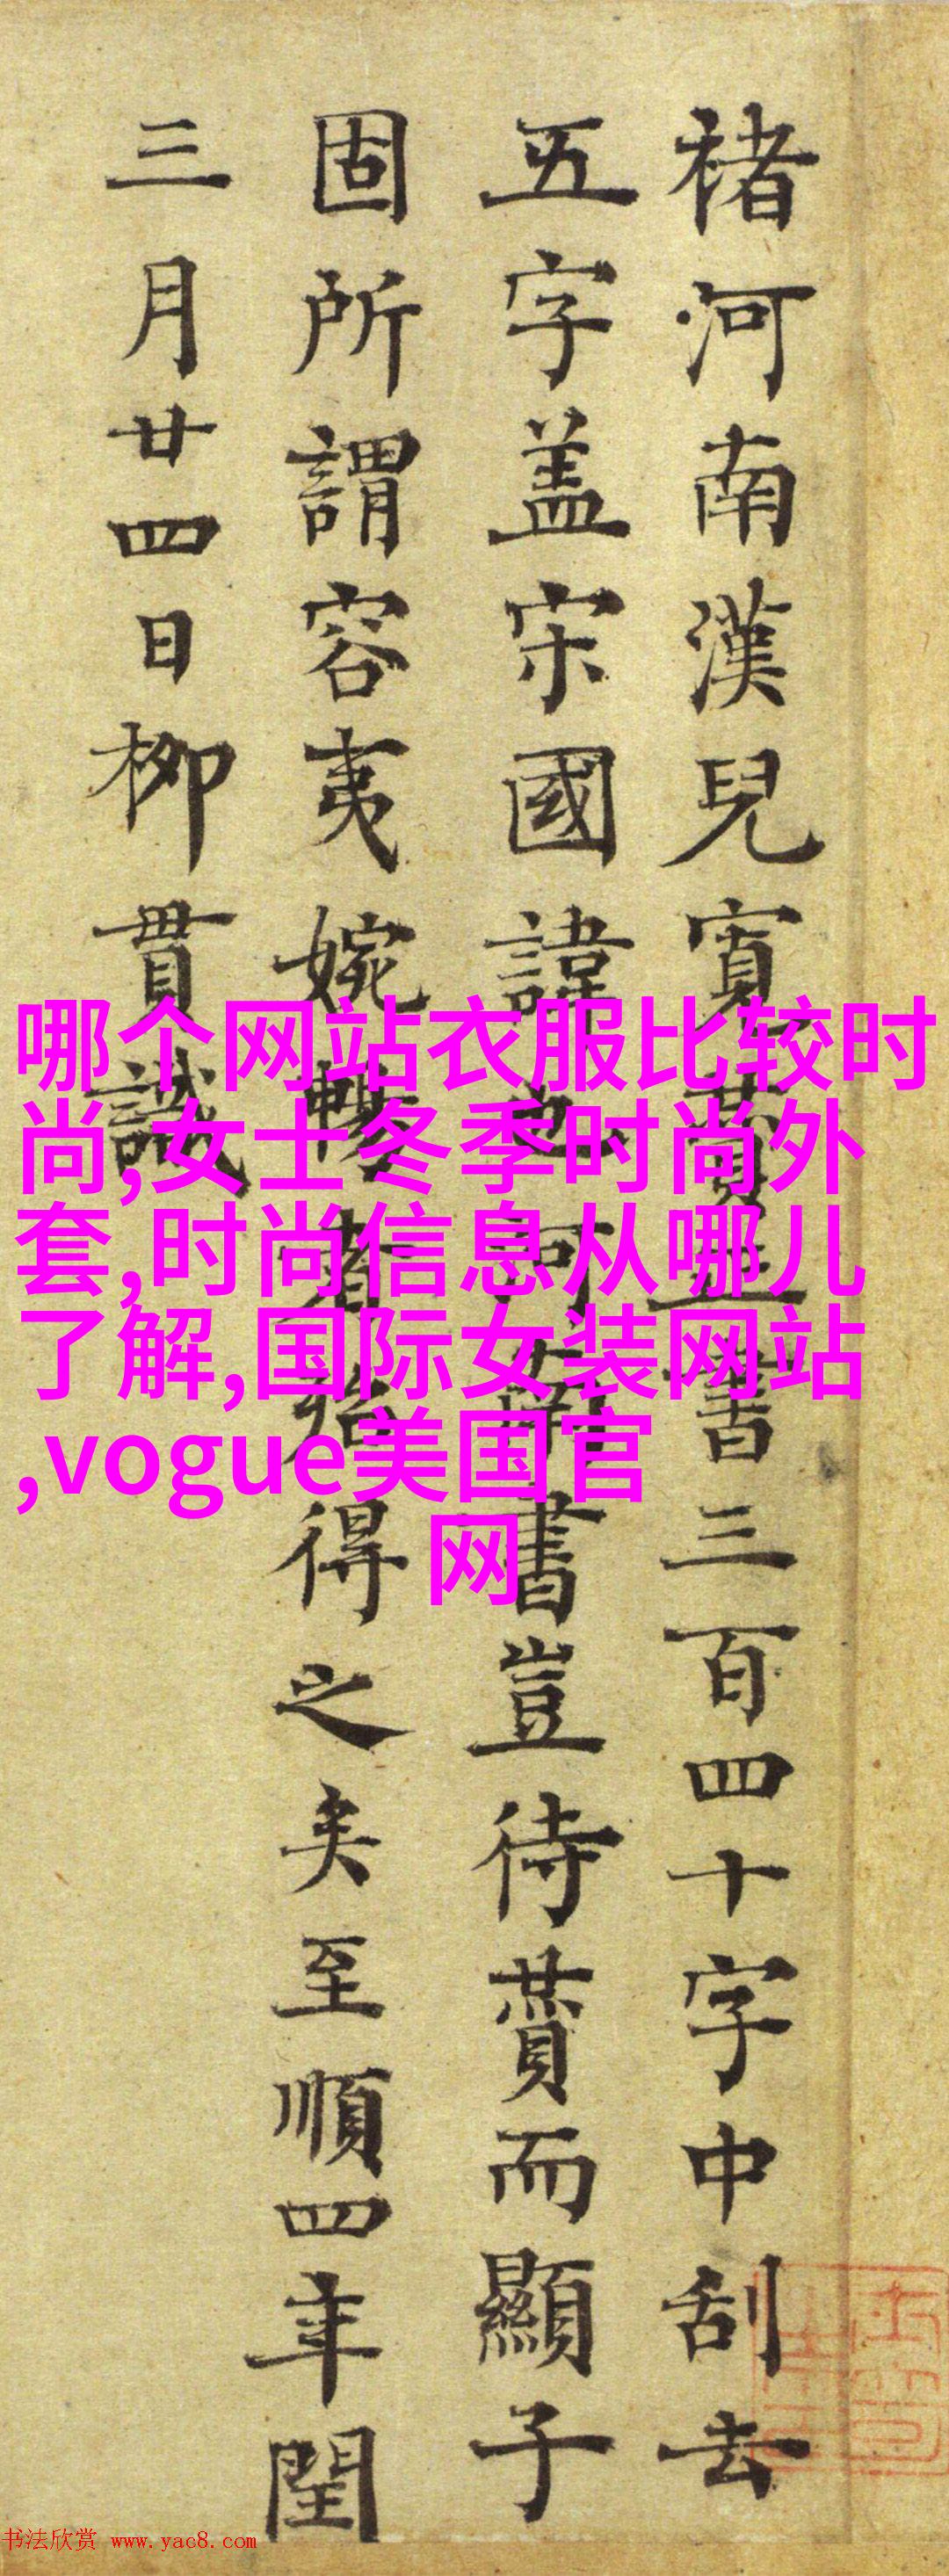 褚河南漢兒寬賛書三百四十字中刮去
五字盖宋國諱也河南書豈待賛而顯子
固所謂容夷婉暢者殆得之矣至順四年閏
三月廿四日柳貫識
哪个网站衣服比较时
尚,女士冬季时尚外
套,时尚信息从哪儿
了解,国际女装网站
,vogue美国官
网
书法欣赏 www.yac8.com